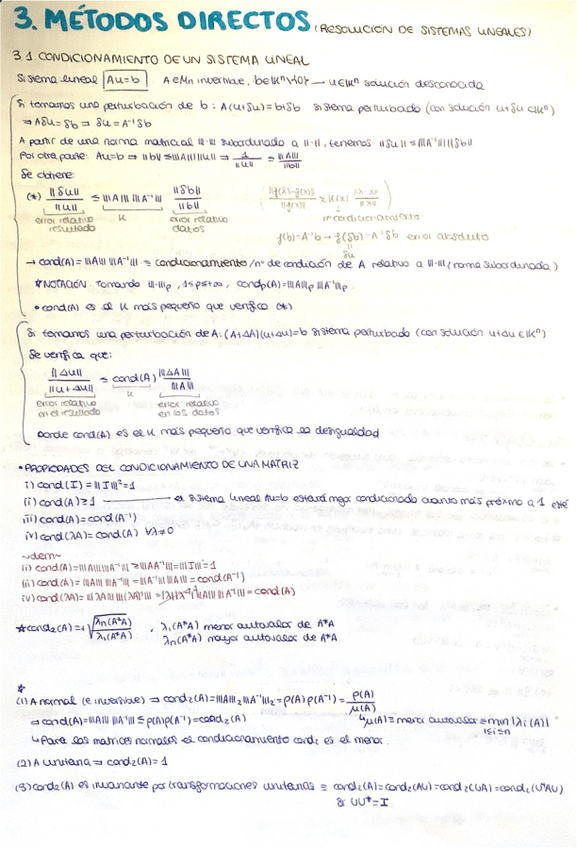 3. MÉTODOS DIRECTOS (RESOLUCIÓN DE SISTEMAS LINEALES)
3.1. CONDICIONAMIENTO DE UN SISTEMA LINEAL
Sistema lineal Au=b A∈Mn invertible, b∈Kⁿ\{0} — u∈Kⁿ solución desconocida
Si tomamos una perturbación de b: A(u+δu)=b+δb sistema perturbado (con solución u+δu∈Kⁿ)
⇒ Aδu=δb ⇒ δu=A⁻¹δb
A partir de una norma matricial |||·||| subordinada a ||·||, tenemos ||δu|| ≤ |||A⁻¹||| ||δb||
Por otra parte: Au=b ⇒ ||b|| ≤ |||A||| ||u|| ⇒ 1/||u|| ≤ |||A|||/||b||
Se obtiene:
(*) ||δu||/||u|| ≤ |||A||| |||A⁻¹||| ||δb||/||b||
error relativo resultado K error relativo datos
condicionamiento
f(b)=A⁻¹b → f(δb)=A⁻¹δb error absoluto
δu
→ cond(A)=|||A||| |||A⁻¹||| ≡ condicionamiento/nº de condición de A relativo a |||·||| (norma subordinada)
*NOTACIÓN: Tomando |||·|||p, 1≤p≤+∞, condp(A)=|||A|||p |||A⁻¹|||p.
• cond(A) es el K más pequeño que verifica (*)
Si tomamos una perturbación de A: (A+ΔA)(u+Δu)=b sistema perturbado (con solución u+Δu∈Kⁿ)
Se verifica que:
||Δu||/||u+Δu|| ≤ cond(A) |||ΔA|||/|||A|||
error relativo en el resultado K error relativo en los datos
Donde cond(A) es el K más pequeño que verifica la desigualdad
• PROPIEDADES DEL CONDICIONAMIENTO DE UNA MATRIZ
i) cond(I)=|||I|||²=1
(ii) cond(A)≥1 → el sistema lineal Au=b estará mejor condicionado cuanto más próximo a 1 esté
iii) cond(A)=cond(A⁻¹)
iv) cond(λA)=cond(A) ∀λ≠0
~dem~
(ii) cond(A)=|||A||| |||A⁻¹||| ≥ |||AA⁻¹|||=|||I|||=1
(iii) cond(A)=|||A||| |||A⁻¹|||=|||A⁻¹||| |||A|||=cond(A⁻¹)
iv) cond(λA)=|||λA||| |||(λA)⁻¹|||=|λ||λ⁻¹| |||A||| |||A⁻¹|||=cond(A)
★cond₂(A)=+√(λn(A*A)/λ₁(A*A)) , λ₁(A*A) menor autovalor de A*A
λn(A*A) mayor autovalor de A*A
*
(1) A normal (e invertible) ⇒ cond₂(A)=|||A|||₂|||A⁻¹|||₂=ρ(A)ρ(A⁻¹)=ρ(A)/μ(A)
⇒ cond(A)=|||A||| |||A⁻¹||| ≤ ρ(A)ρ(A⁻¹)=cond₂(A) ↳μ(A)≡menor autovalor≡min |λi(A)| 1≤i≤n
↳ Para las matrices normales el condicionamiento cond₂ es el menor.
(2) A unitaria ⇒ cond₂(A)=1
(3) cond₂(A) es invariante por transformaciones unitarias ≡ cond₂(A)=cond₂(AU)=cond₂(UA)=cond₂(U*AU)
si UU*=I